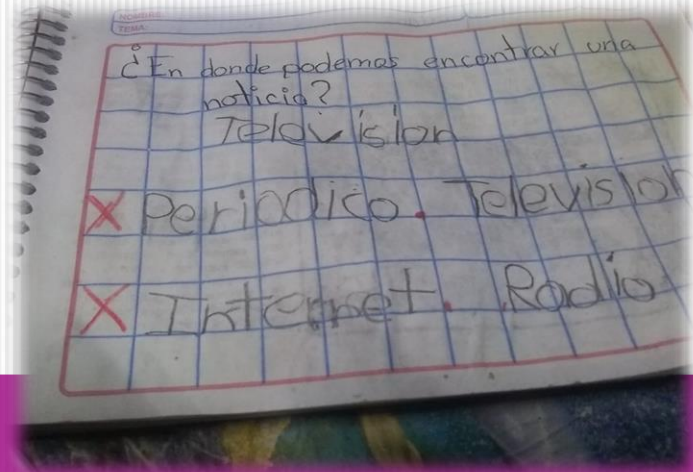 NOMBRE
TEMA
¿En donde podemos encontrar una
noticia?
Television
X Periodico. Television
X Internet. Radio